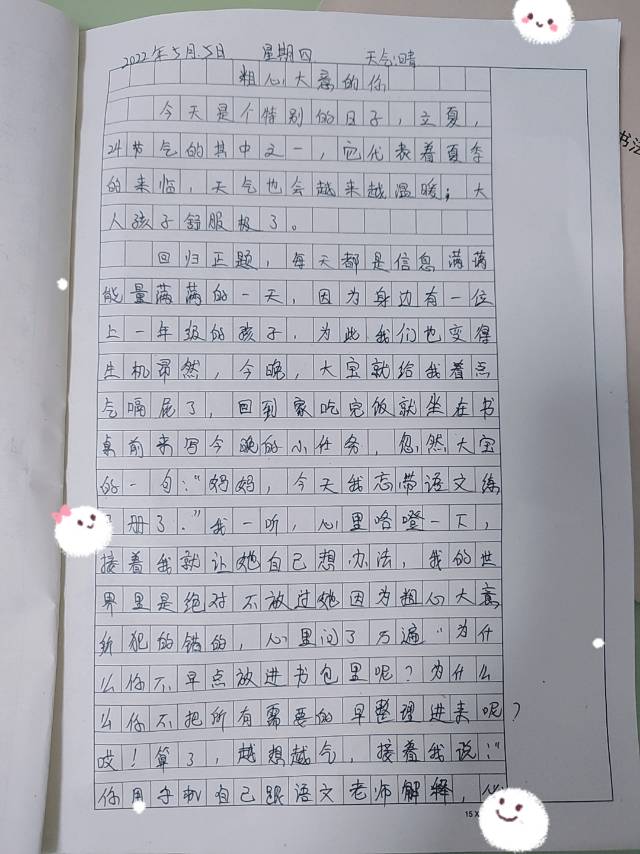 2022年5月5日 星期四 天气:晴
粗心大意的你
今天是个特别的日子,立夏,
24节气的其中之一,它代表着夏季
的来临,天气也会越来越温暖;大
人孩子舒服极了。
回归正题,每天都是信息满满
能量满满的一天,因为身边有一位
上一年级的孩子,为此我们也变得
生机昂然,今晚,大宝就给我着点
气嗝屁了,回到家吃完饭就坐在书
桌前来写今晚的小任务,忽然大宝
的一句:“妈妈,今天我忘带语文练
册了.”我一听,心里咯噔一下,
接着我就让她自己想办法,我的世
界里是绝对不放过她因为粗心大意
所犯的错的,心里问了万遍“为什
么你不早点放进书包里呢?为什么
么你不把所有需要的早整理进来呢?
哎!算了,越想越气,接着我说:“
你用手机自己跟语文老师解释,
书法
15 X